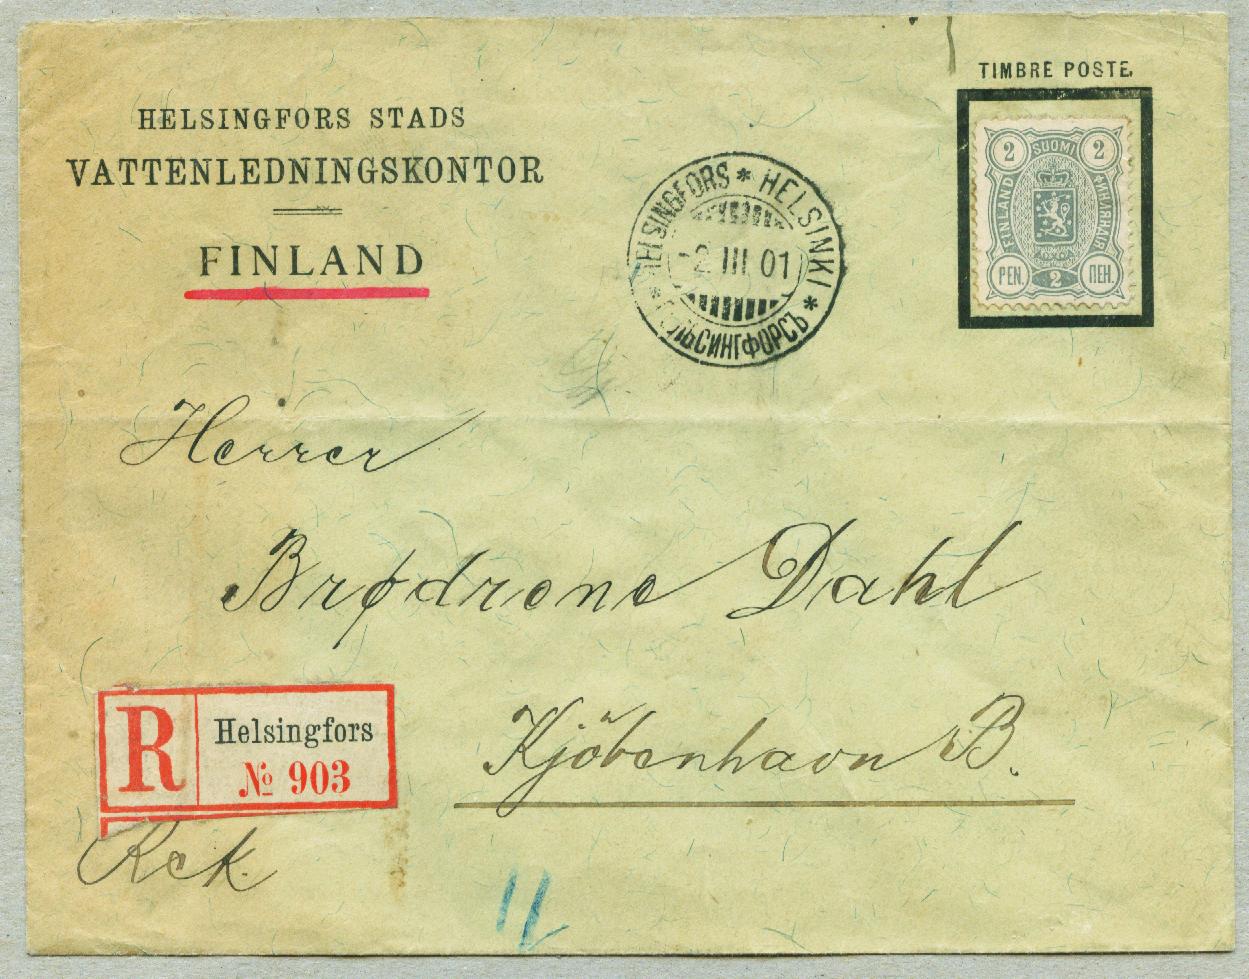 TIMBRE POSTE.
HELSINGFORS STADS
VATTENLEDNINGSKONTOR
FINLAND
HELSINGFORS * HELSINKI *
2 III 01
ЛЬСИНГФОРСЪ *
2 SUOMI 2
FINLAND
ФИНЛЯНДІЯ
PEN. 2 ПЕН.
Herrer
Brødrene Dahl
Kjöbenhavn B.
R Helsingfors
№ 903
Rek.
11